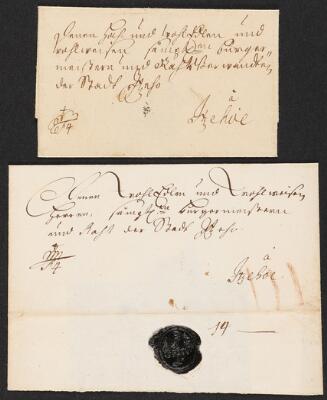 Denen und WohlEdlen und
wohlweisen sämptl. Bürger-
meistern und Raht Verwandten
der Stadt Itzeho
à
Itzehoe
Denen WohlEdlen und Wohlweisen
Herren, sämptl. Bürgermeistern
und Raht der Stadt Itzeho.
à
Itzehoe.
19